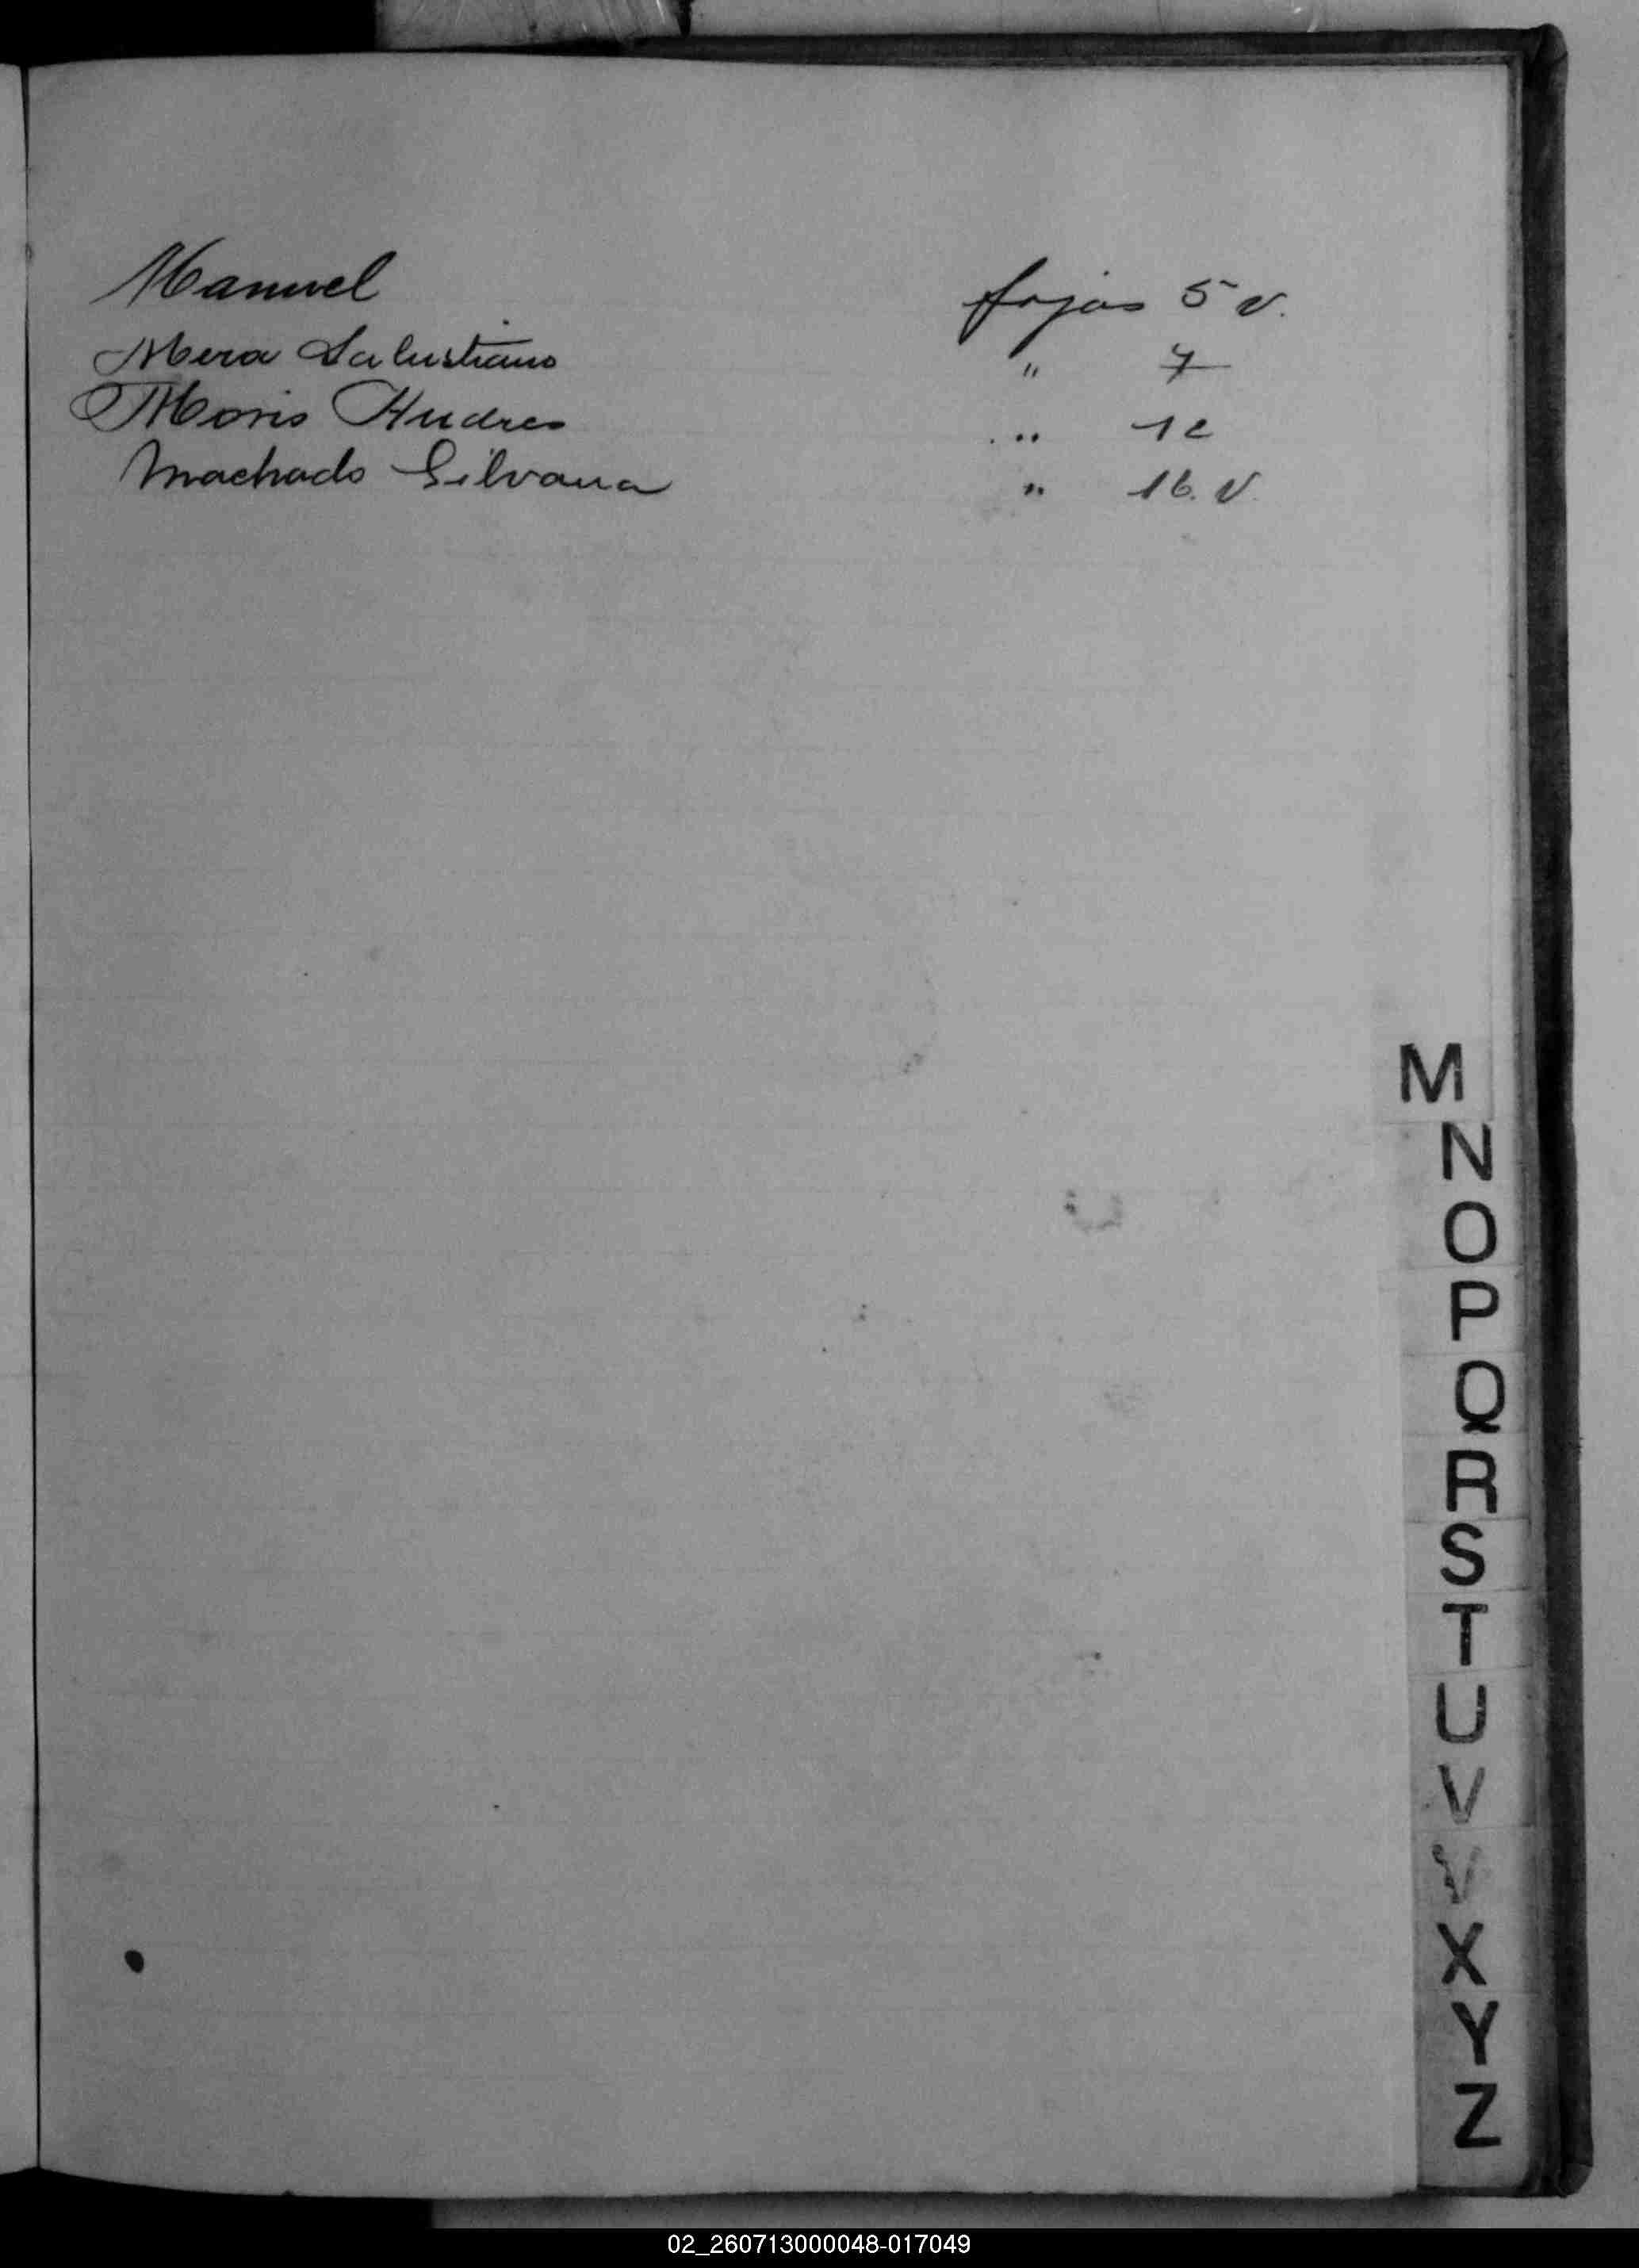 Manuel fojas 5 v.
Mera Salustiano " 7
Moris Andres " 12
Machado Silvana " 16. v.
M
N
O
P
Q
R
S
T
U
V
X
Y
Z
02_260713000048-017049